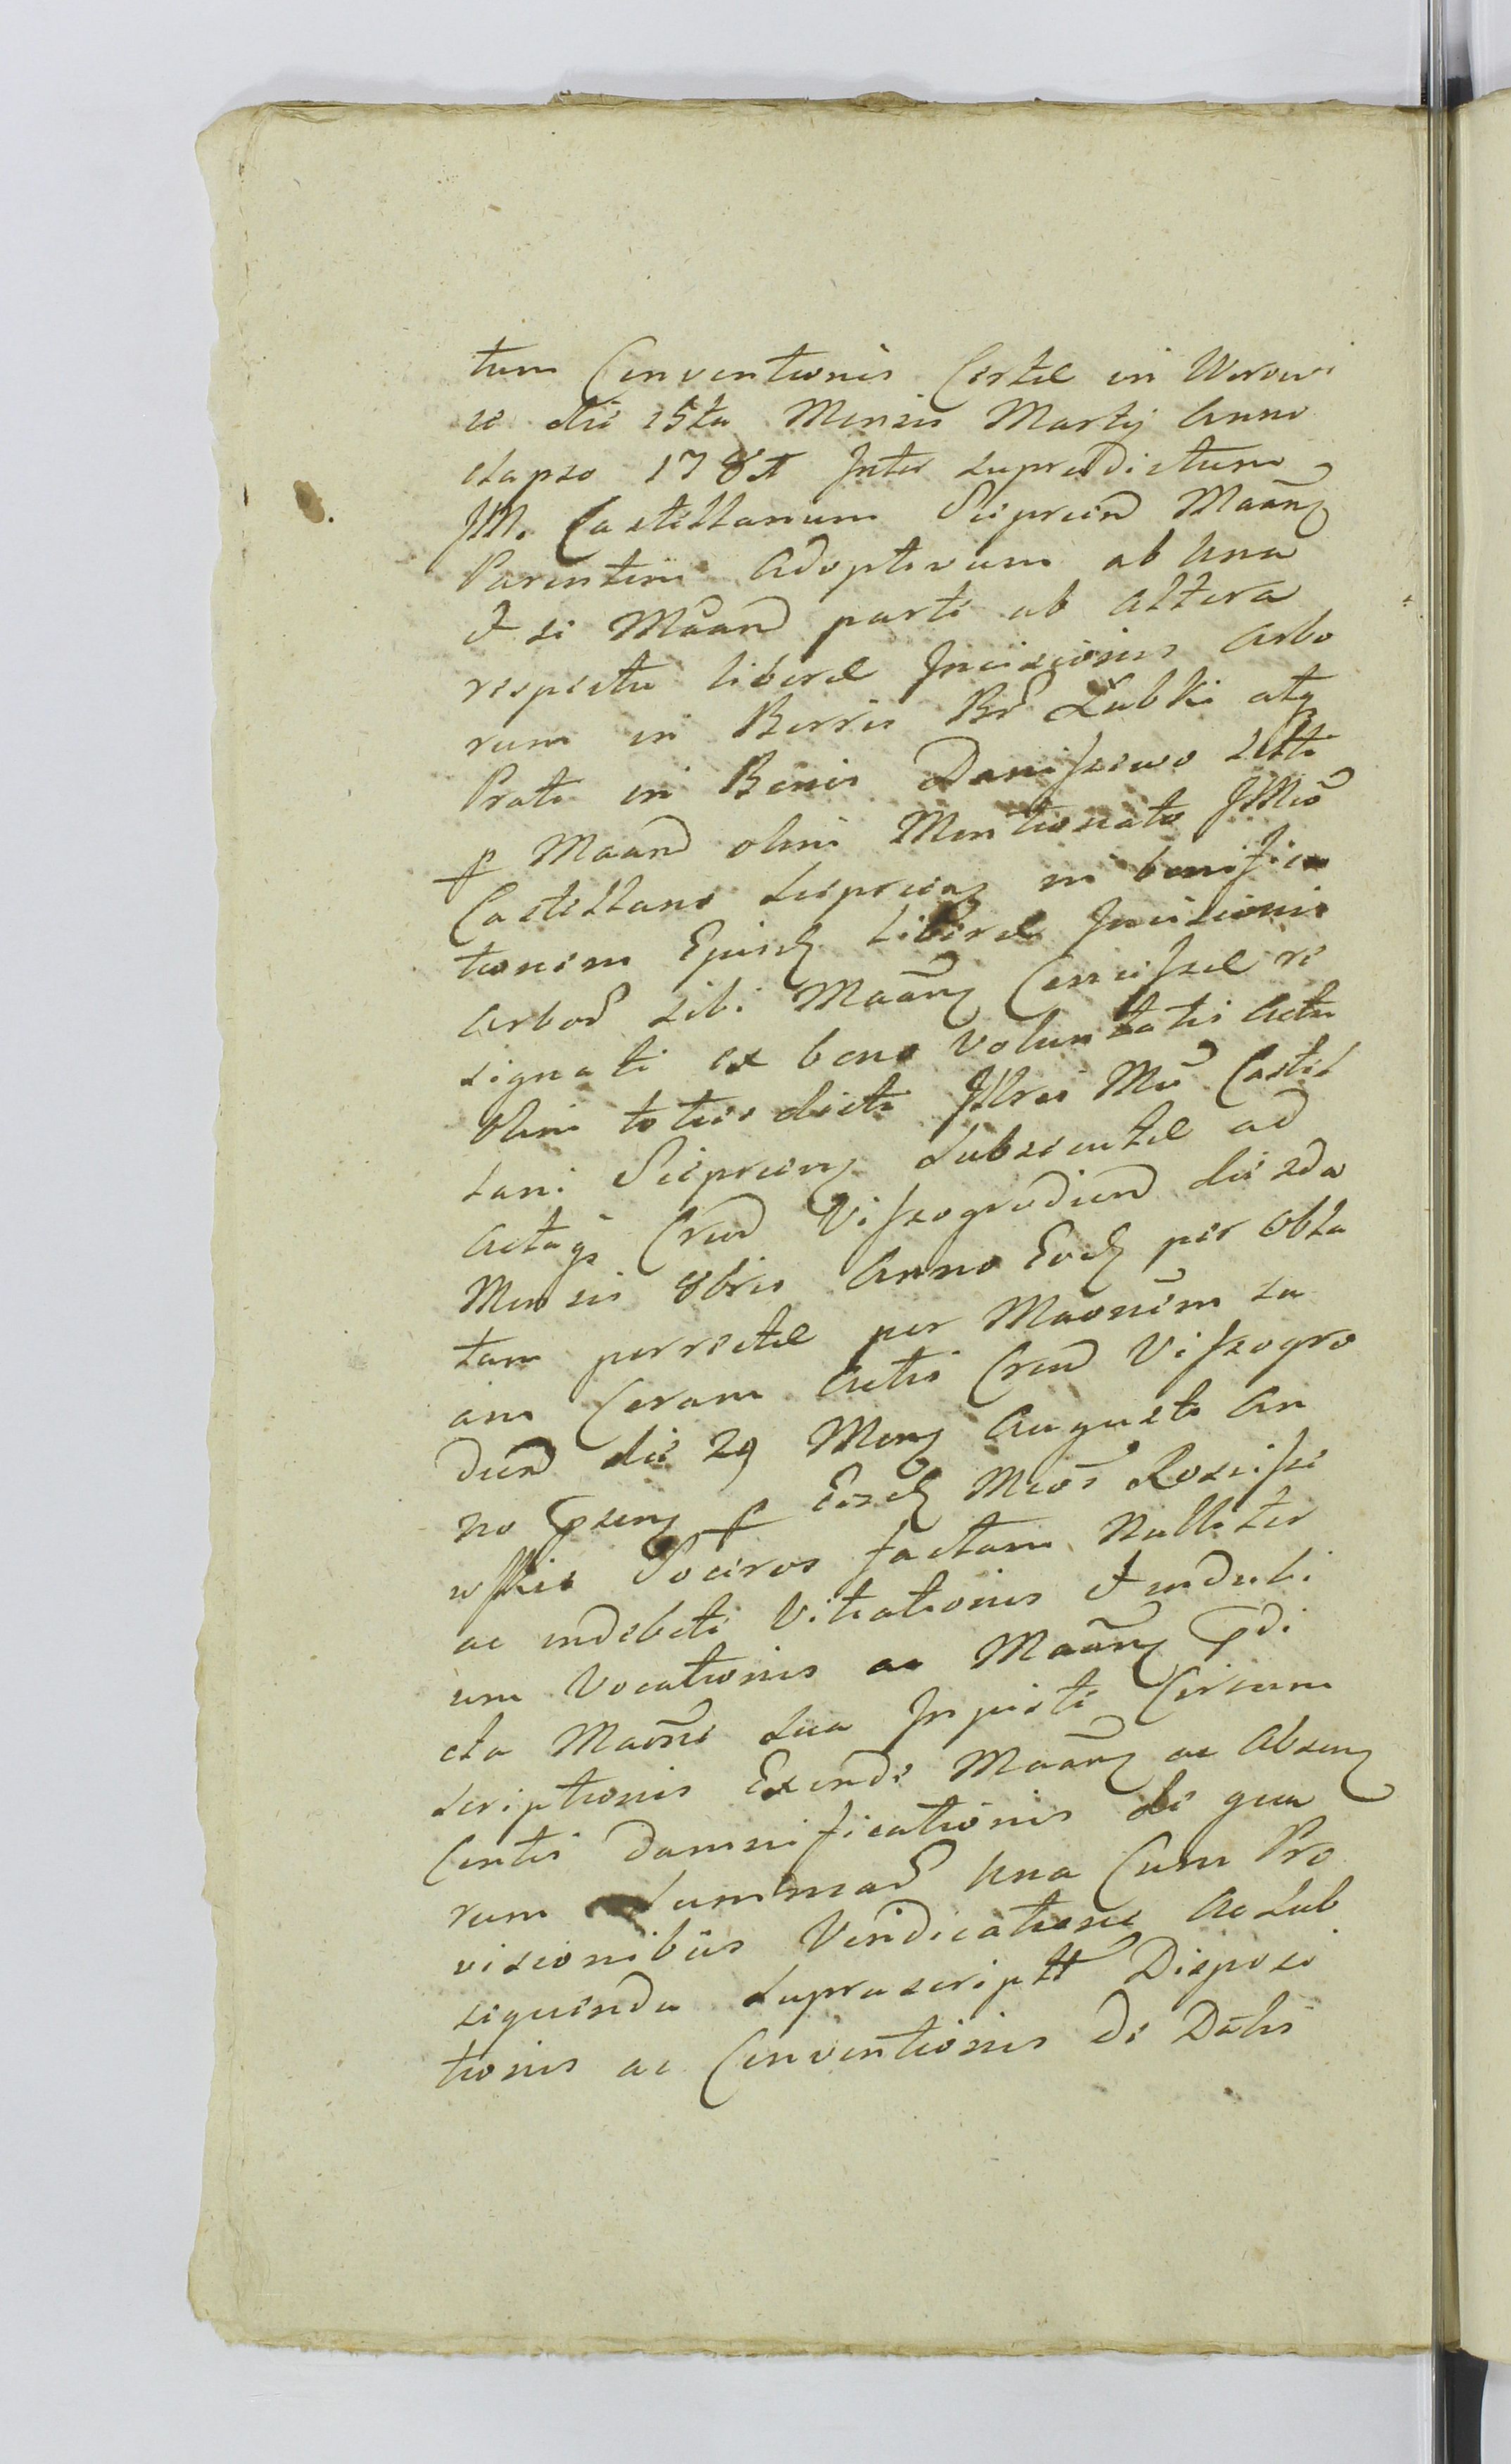 tum Conventionis Certae in Worowi
ce die 15ta Mensis Martij Anno
elapso 178 Inter supradictum
JM. Castellanum Sieprcen Maang
Parentem Adoptivum ab una
et se Maand parte ab altera
respectu liberae Incisionis Arbo
rum in Borris Br Łubki atq
Prati in Bonis Daniszewo siti
p Maand olim Mentionato JMio
Castellano Sieprceng in bonifica
tionem Ejusd Liberae Incisionis
Arbor sibi Maang Concissae re
signati ex bono Voluntatis Actu
Olim toties dicti Illris Mci Castel
lani Sieprceng Subsecutae ad
Actaq Crud Viszogrodien die 2da
Mensis 8bris Anno Eod per Obla
tam porrectae per Maonem su
am Coram Actis Crud Viszogro
dien die 29 Meng Augusti An
no pseng p Eosd Mcos Rosciszé
wskie Soceros factam Nulliter
ac indebite Vitiationis et indebi
um Vocationis ac Maang pdi
cta Maone sua Injuste Circum
scriptionis Exinde Maang ac Abseng
Centis damnificationis de qua
rum Summar una Cum Pro
visionibus Vindicatione Ac sub
siquenda Supra scriptt Disposi
tionis ac Conventionis de Datis